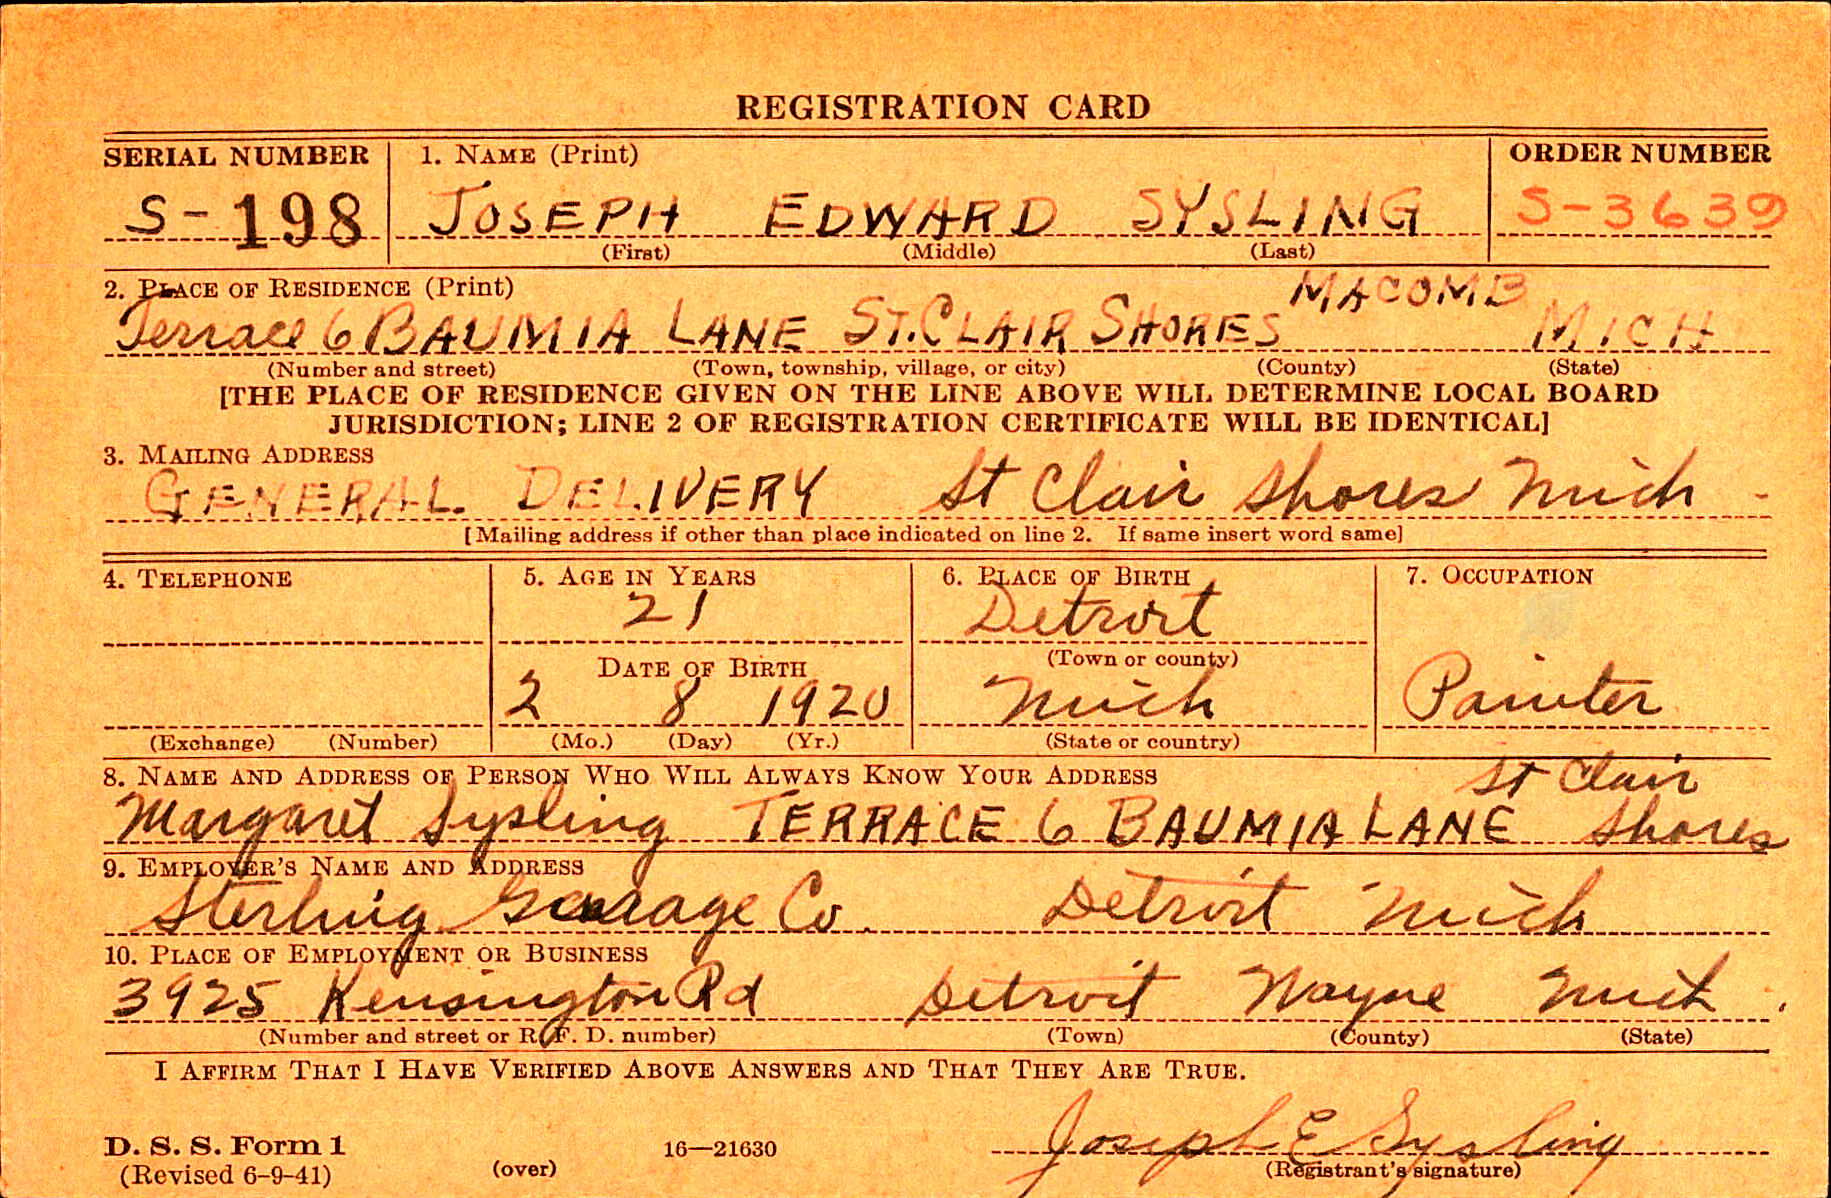 REGISTRATION CARD
SERIAL NUMBER 1. NAME (Print) ORDER NUMBER
S-198 JOSEPH EDWARD SYSLING S-3639
(First) (Middle) (Last)
2. PLACE OF RESIDENCE (Print) MACOMB
Terrace 6 BAUMIA LANE ST. CLAIR SHORES MICH
(Number and street) (Town, township, village, or city) (County) (State)
[THE PLACE OF RESIDENCE GIVEN ON THE LINE ABOVE WILL DETERMINE LOCAL BOARD
JURISDICTION; LINE 2 OF REGISTRATION CERTIFICATE WILL BE IDENTICAL]
3. MAILING ADDRESS
GENERAL. DELIVERY St Clair Shores Mich -
[Mailing address if other than place indicated on line 2. If same insert word same]
4. TELEPHONE 5. AGE IN YEARS 6. PLACE OF BIRTH 7. OCCUPATION
21 Detroit
DATE OF BIRTH (Town or county)
2 8 1920 Mich Painter
(Exchange) (Number) (Mo.) (Day) (Yr.) (State or country)
8. NAME AND ADDRESS OF PERSON WHO WILL ALWAYS KNOW YOUR ADDRESS St Clair
Margaret Sysling TERRACE 6 BAUMIA LANE Shores
9. EMPLOYER'S NAME AND ADDRESS
Sterling Garage Co. Detroit Mich
10. PLACE OF EMPLOYMENT OR BUSINESS
3925 Kensington Rd Detroit Wayne Mich.
(Number and street or R. F. D. number) (Town) (County) (State)
I AFFIRM THAT I HAVE VERIFIED ABOVE ANSWERS AND THAT THEY ARE TRUE.
D. S. S. Form 1 16—21630 Joseph E Sysling
(Revised 6-9-41) (over) (Registrant's signature)